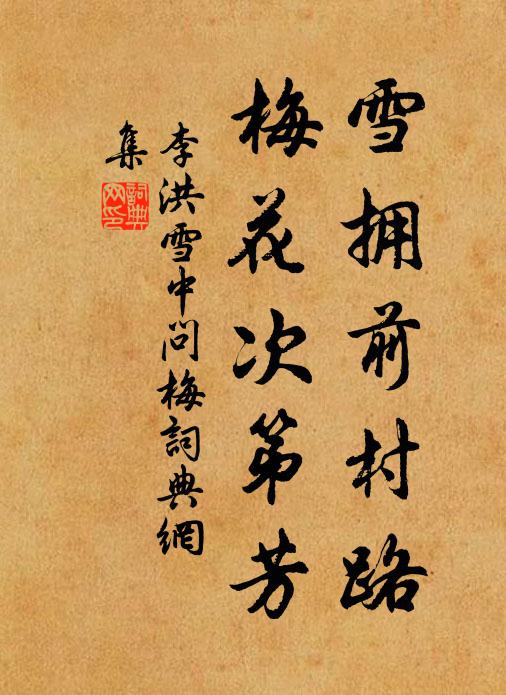 雪拥前村路
梅花次第芳
李洪雪中问梅詞典網
集
詞典网印